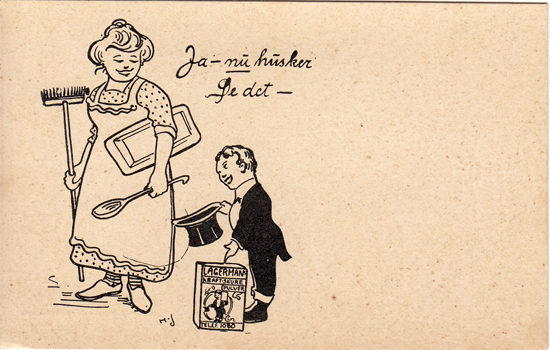 Ja - nu husker
De det -
LAGERMAN
KRAFTSKURE
PULVER
TELEF. 1080
H.J
S.